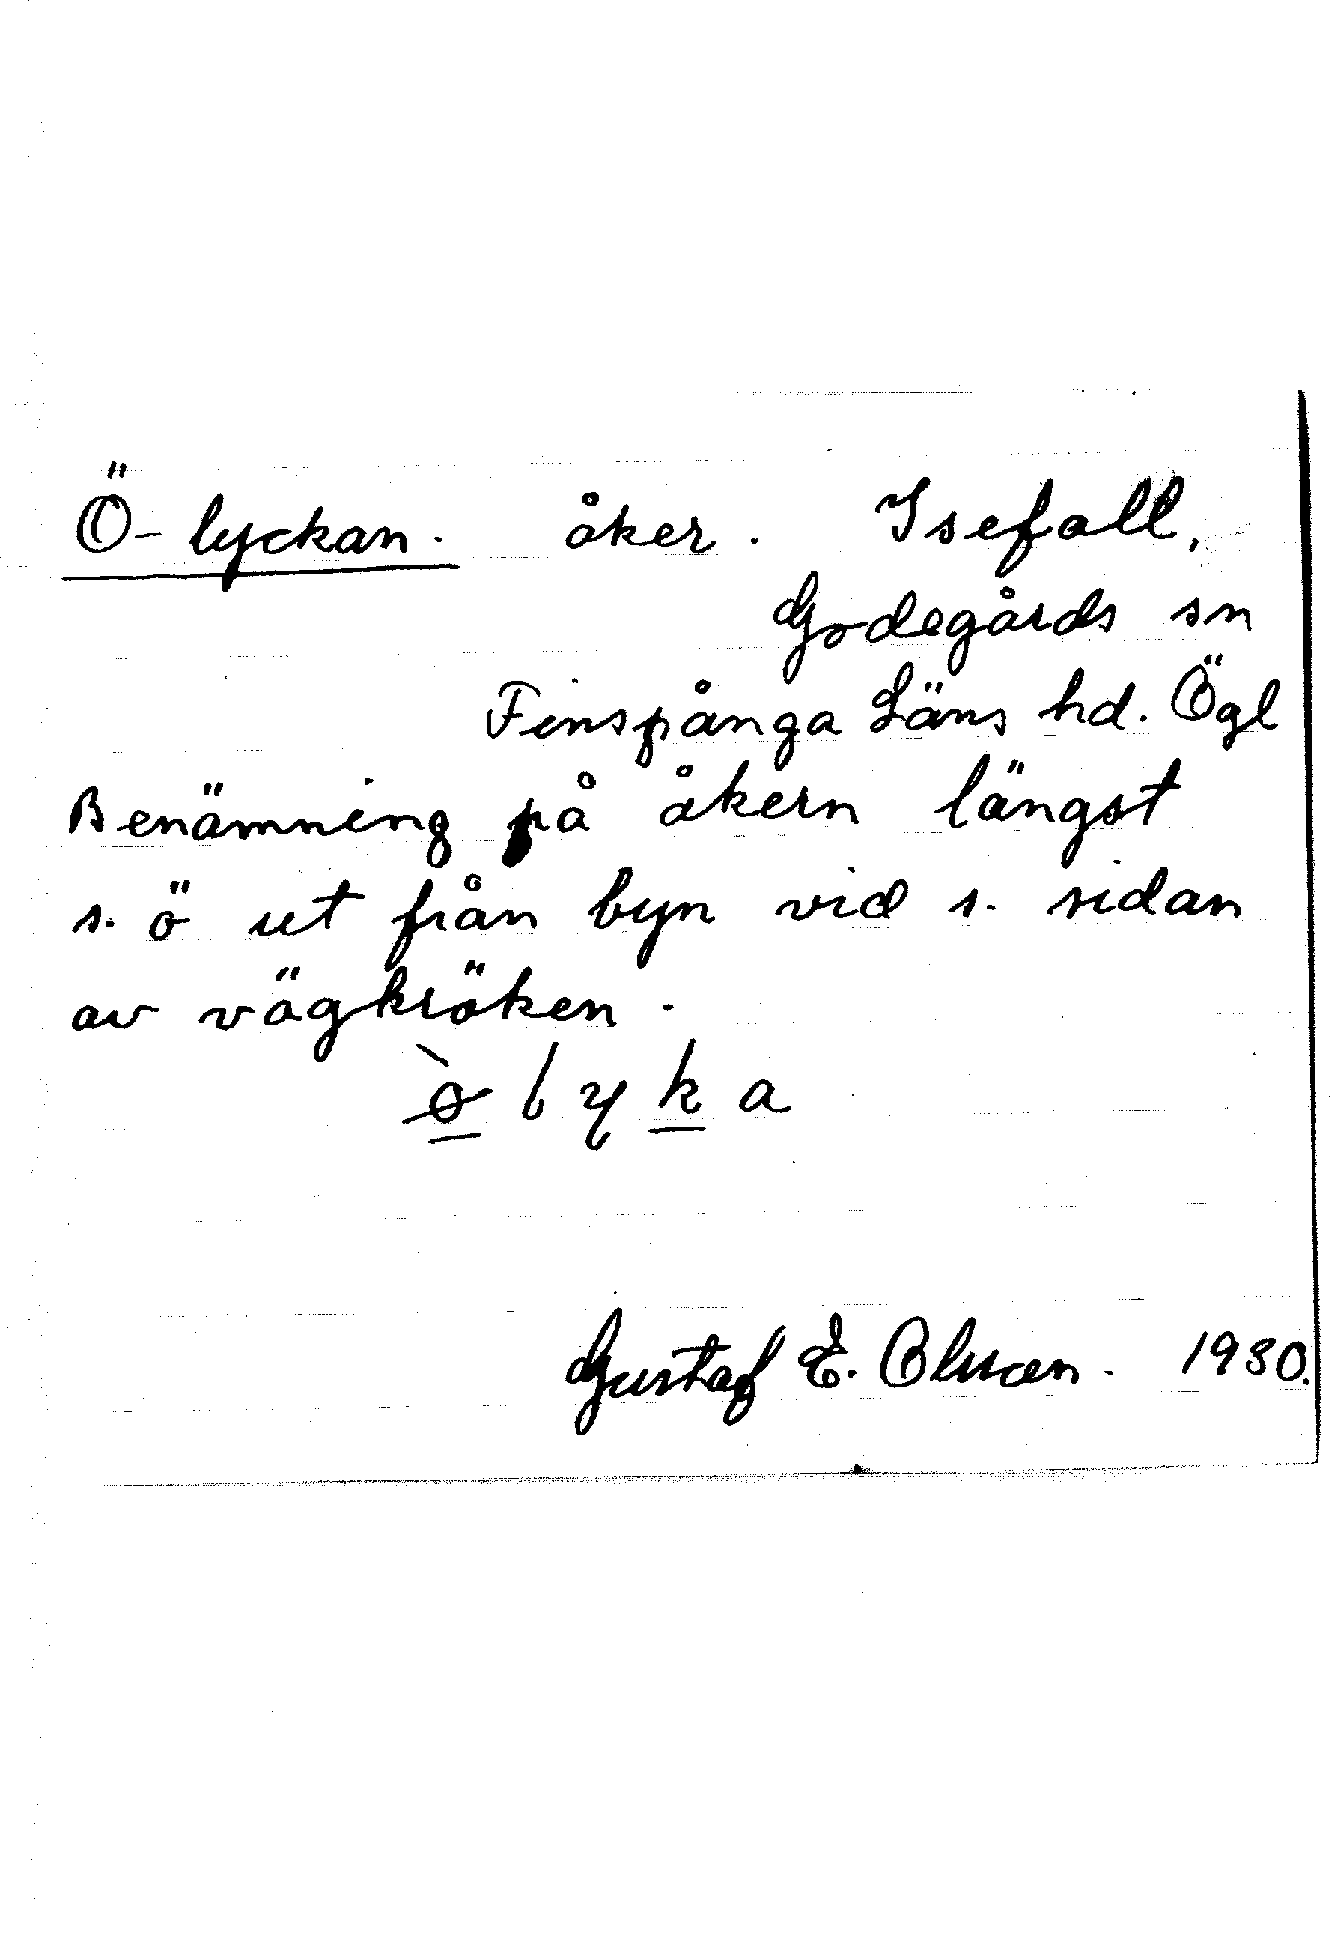 Ö-lyckan. åker. Isefall,
Godegårds sn
Finspånga Läns hd. Ögl
Benämning på åkern längst
s. ö ut från byn vid s. sidan
av vägkröken.
ø̲̀ l y k̲ a
Gustaf E. Olsson. 1930.